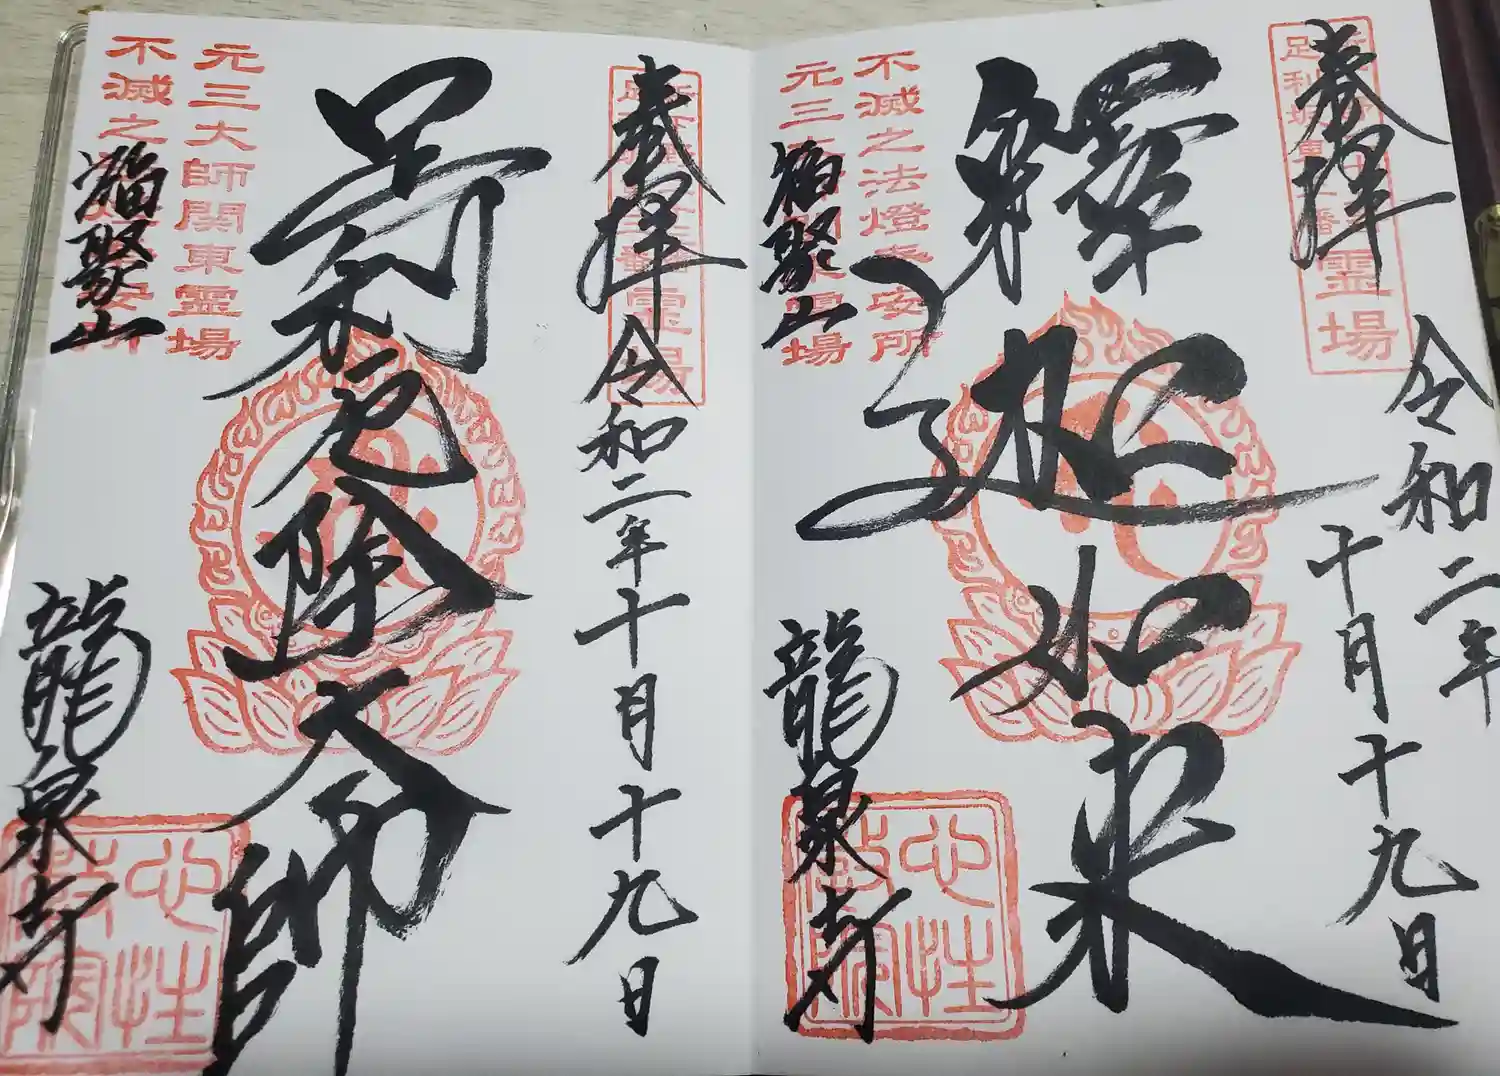 奉拝
令和二年
十月十九日
霊場
釋迦如来
不滅之法燈奉安所
元三大師関東霊場
福聚山
龍泉寺
心性
奉拝
令和二年十月十九日
霊場
厄除大師
元三大師関東霊場
不滅之
福聚山
龍泉寺
心性